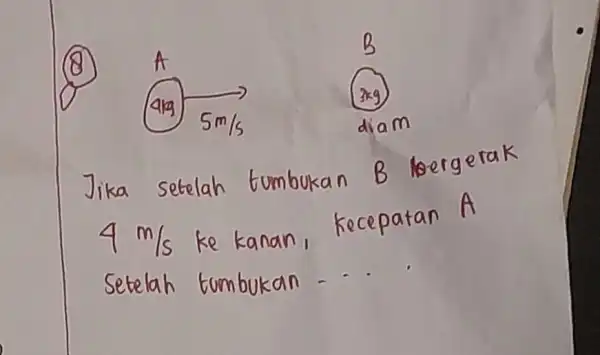 8
A
B
4kg
5 m/s
3kg
diam
Jika setelah tumbukan B bergerak
4 m/s ke kanan, kecepatan A
Setelah tumbukan - - - .